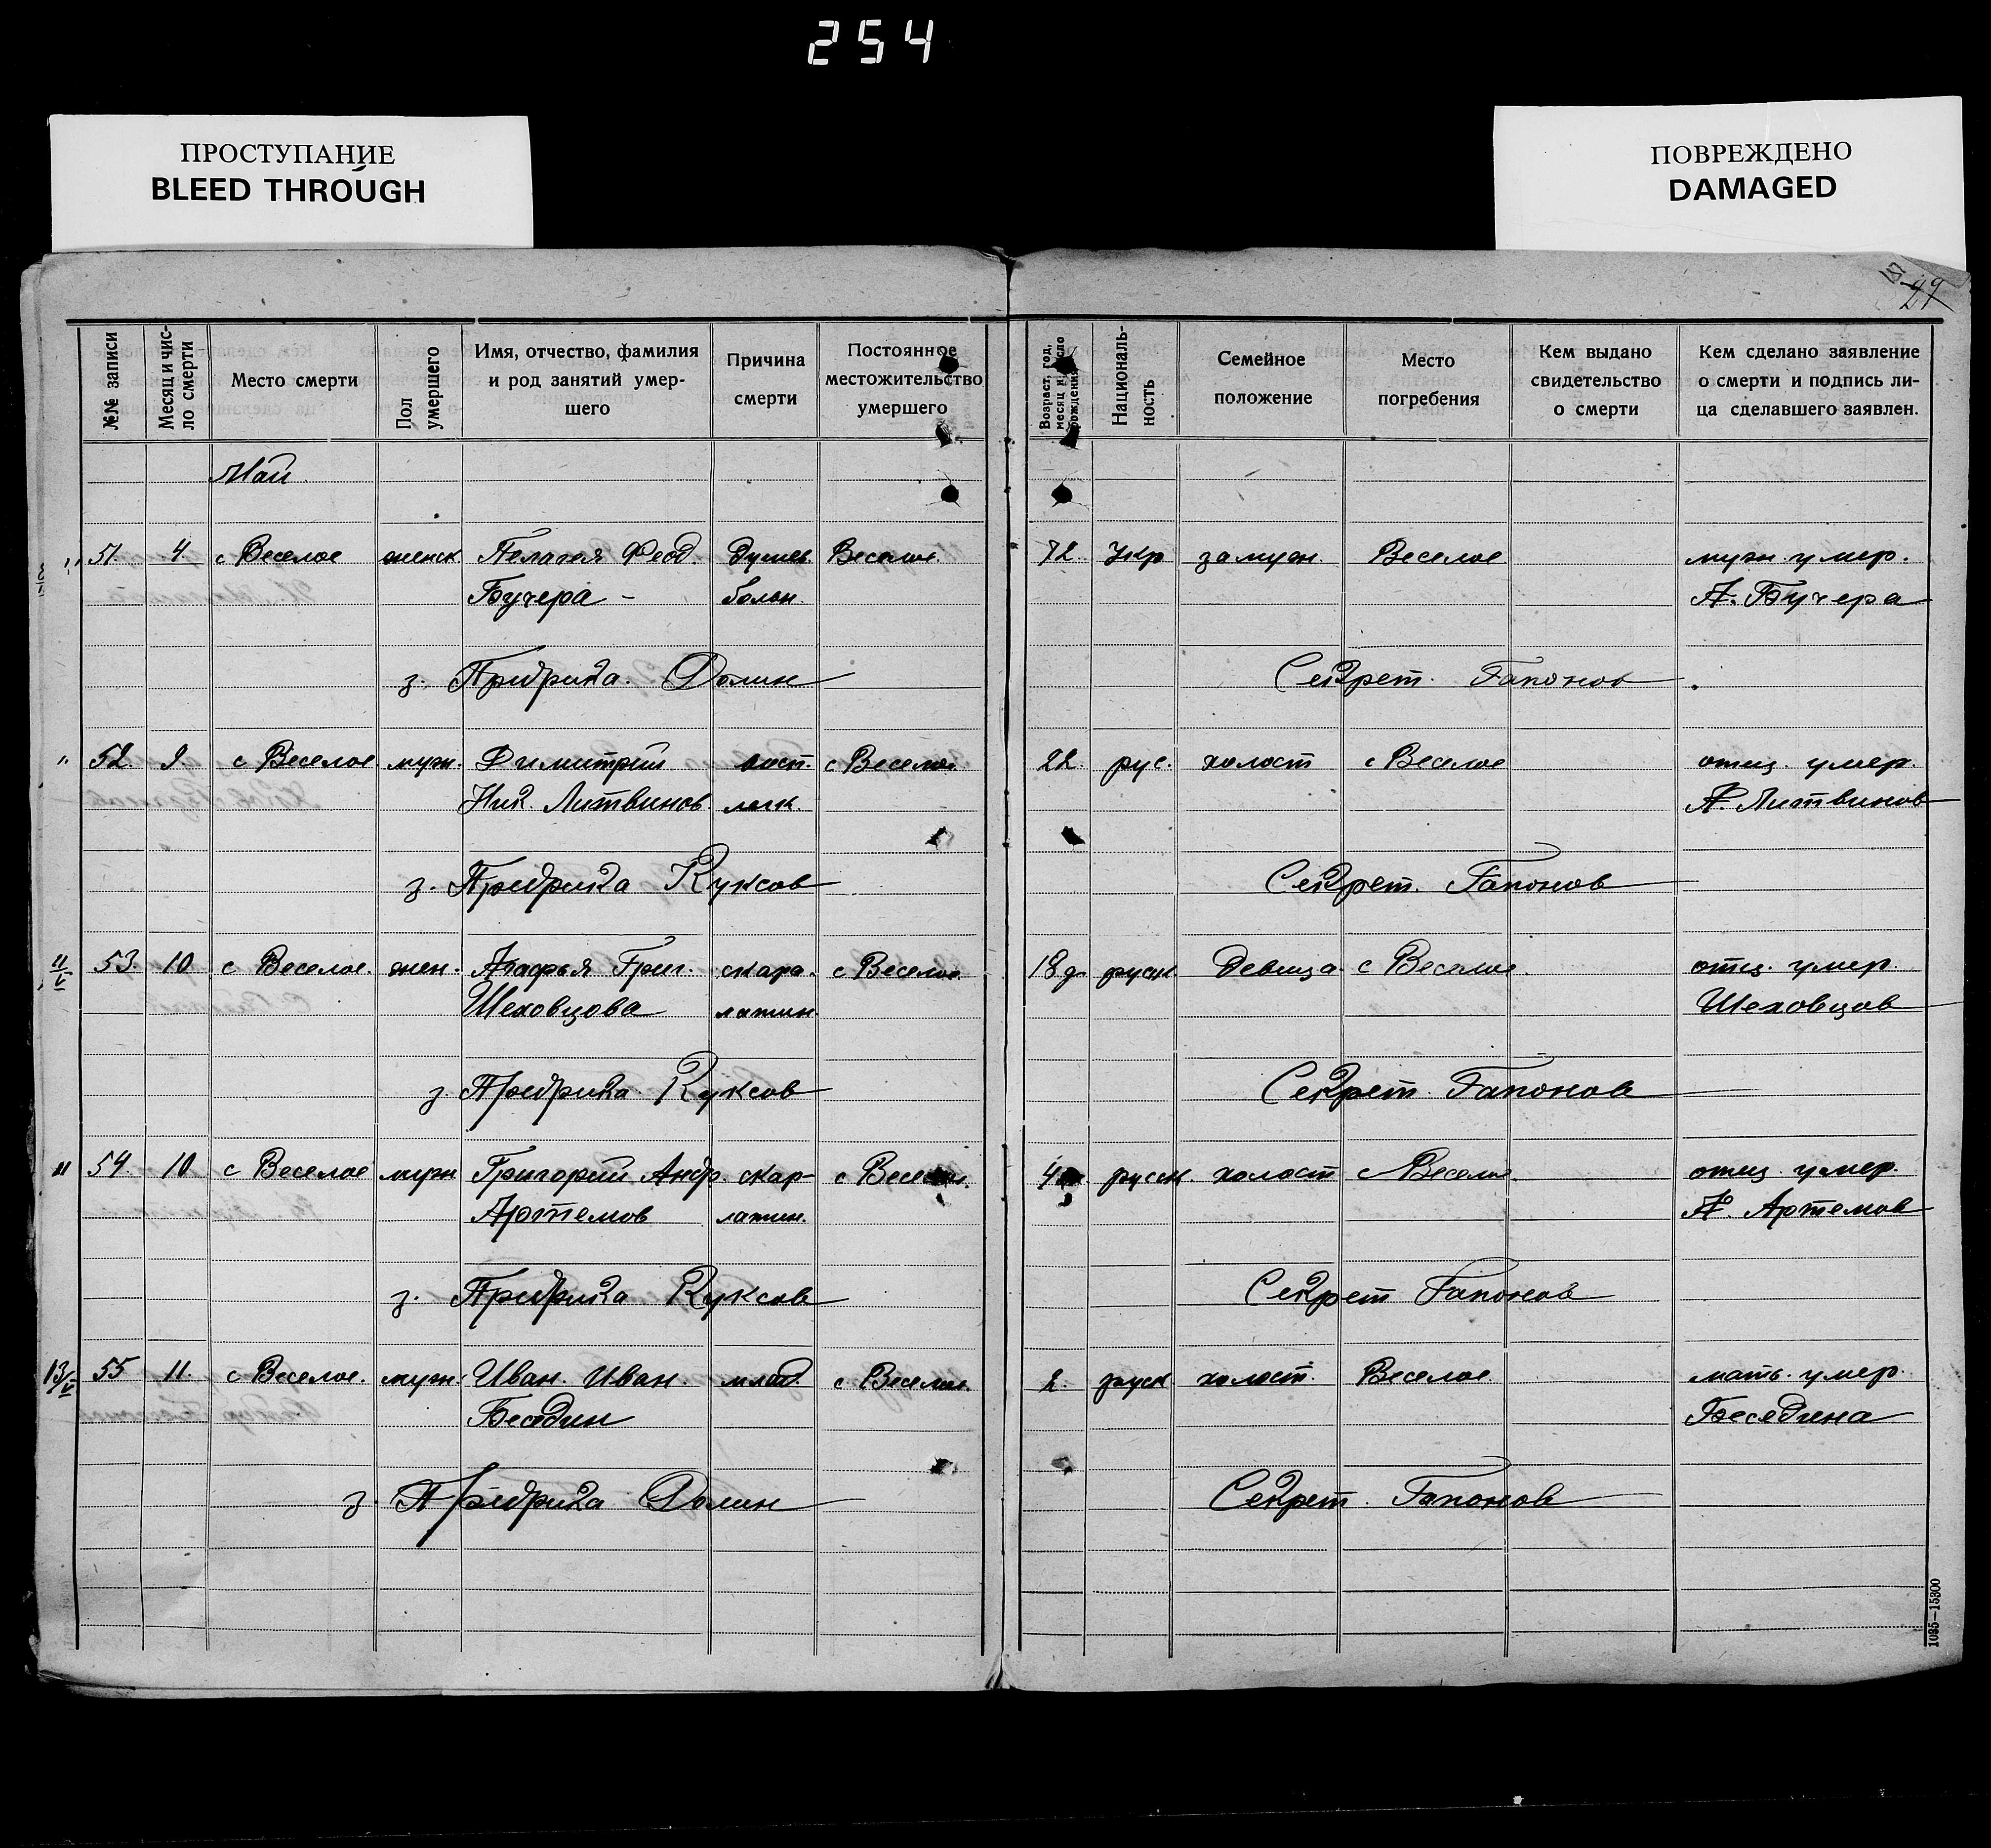 254
ПРОСТУПАНИЕ
BLEED THROUGH
ПОВРЕЖДЕНО
DAMAGED
№№ записи
Месяц и чис-
ло смерти
Место смерти
Пол
умершего
Имя, отчество, фамилия
и род занятий умер-
шего
Причина
смерти
Постоянное
местожительство
умершего
Возраст, год,
месяц и число
рождения
Националь-
ность
Семейное
положение
Место
погребения
Кем выдано
свидетельство
о смерти
Кем сделано заявление
о смерти и подпись ли-
ца сделавшего заявлен.
Май.
51. 4. с Веселое женск Пелагея Феод. душев. Веселое. 72. Укр замуж. Веселое муж умер.
Бучера - больн. А. Бучера
з. Предрика. Долин Секрет. Гапонов
" 52. 9. с Веселое муж. Димитрий восп. с Веселое. 22. рус. холост с Веселое отец. умер.
Ник. Литвинов легк. Литвинов
з. Предрика Куксов Секрет. Гапонов
11/V 53. 10 с Веселое. жен. Агафья Григ. скара- с Веселое 18 д. русск Девица с Веселое. отец. умер.
Шеховцова латин. Шеховцов
з. Предрика. Куксов Секрет. Гапонов
" 54. 10 с Веселое муж Григорий Андр. скар- с Веселое. 4 русск. холост с Веселое. отец умер.
Артемов латин. А. Артемов
з. Предрика. Куксов Секрет Гапонов
13/V 55 11. с Веселое. муж. Иван. Иван млад с Веселое. 2. русск холост. Веселое мать. умер.
Беседин Беседина
з. Предрика Долин Секрет. Гапонов
1035—15300